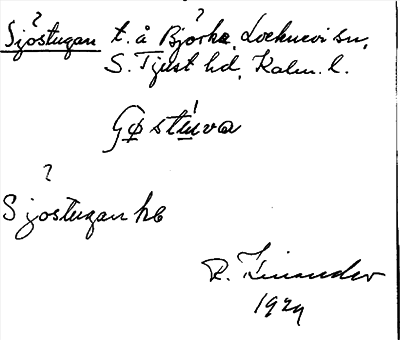 ?
Sjöstugan t. å Björka, Locknevi sn,
S. Tjust hd, Kalm. l.
Gøstúva
?
Sjöstugan hb
R. Linander
1929